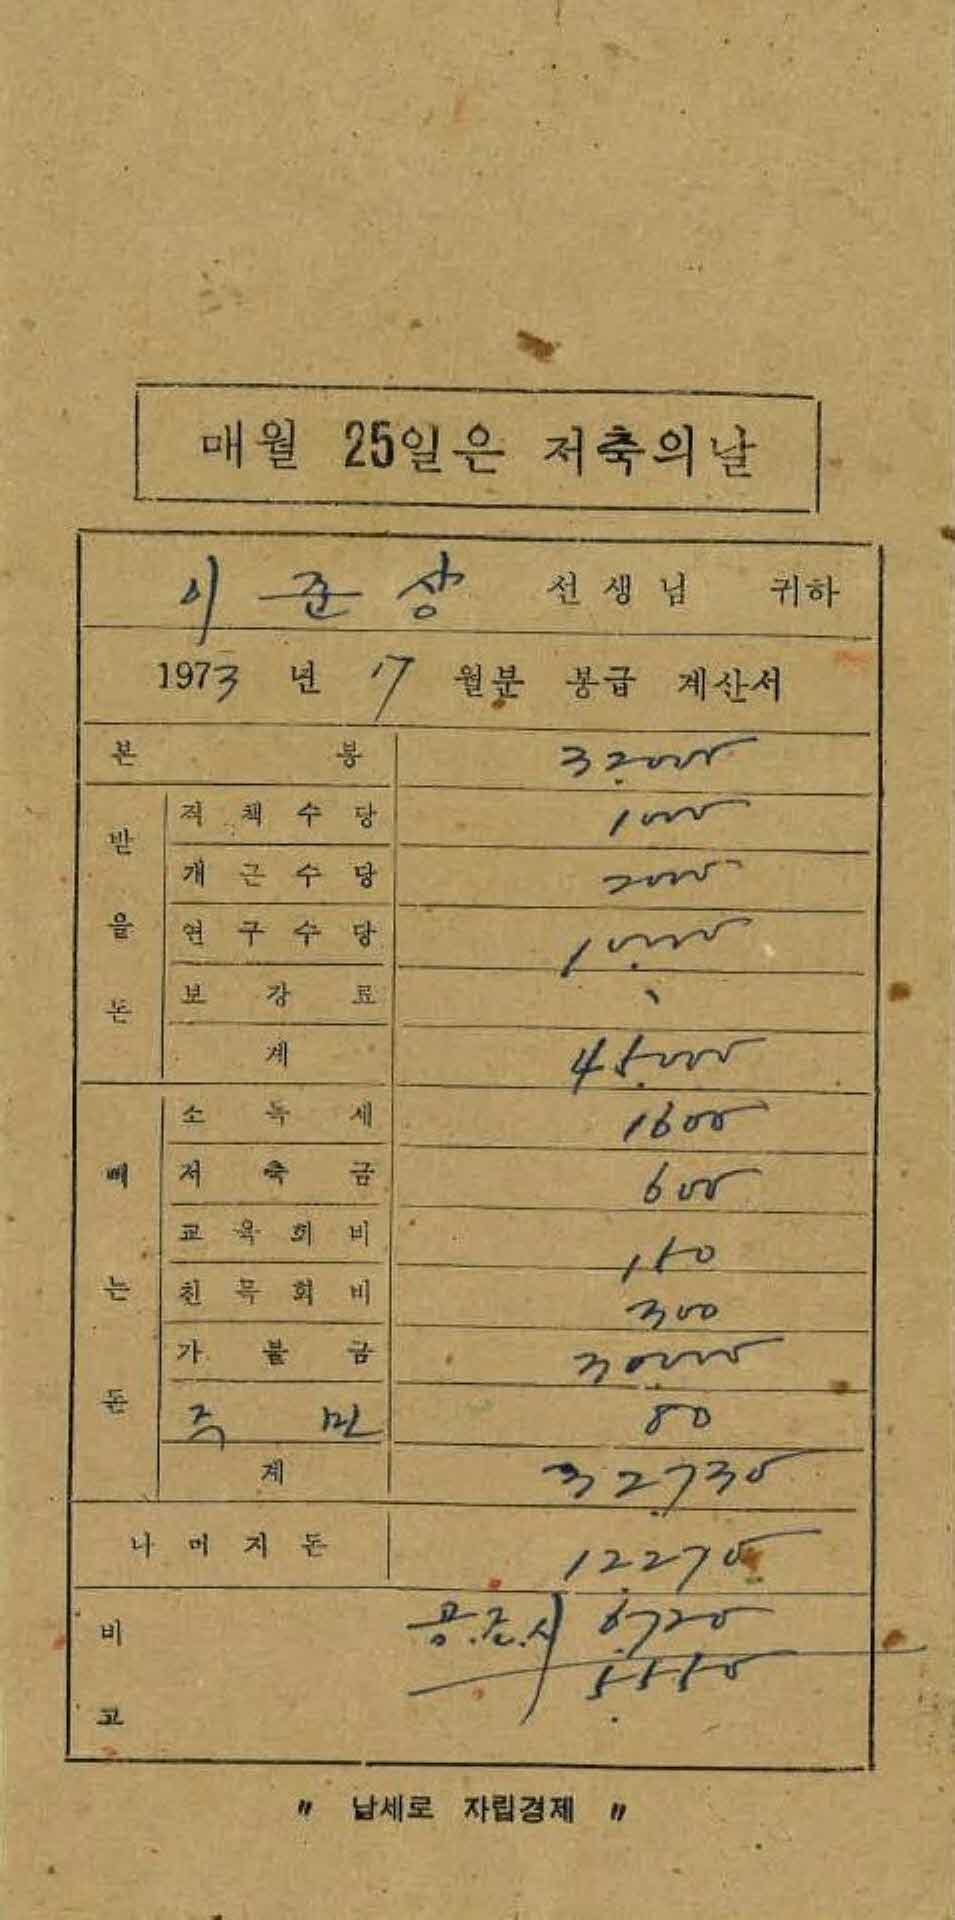 매월 25일은 저축의날
이 준 상 선생님 귀하
1973 년 7 월분 봉급 계산서
본 봉 32000
받을돈
직책수당 1000
개근수당 2000
연구수당 10,000
보강료
계 45,000
빼는돈
소득세 1600
저축금 600
교육회비 150
친목회비 300
가불금 30,000
주민 80
계 32,730
나머지돈 12,270
비고 6,720
5,550
" 납세로 자립경제 "